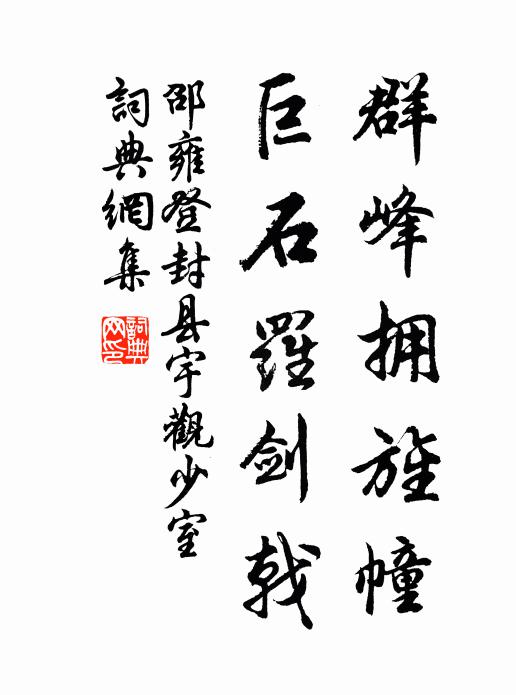 群峰拥旌幢
巨石羅剑戟
邵雍登封县宇觀少室
詞典網集
詞典网印